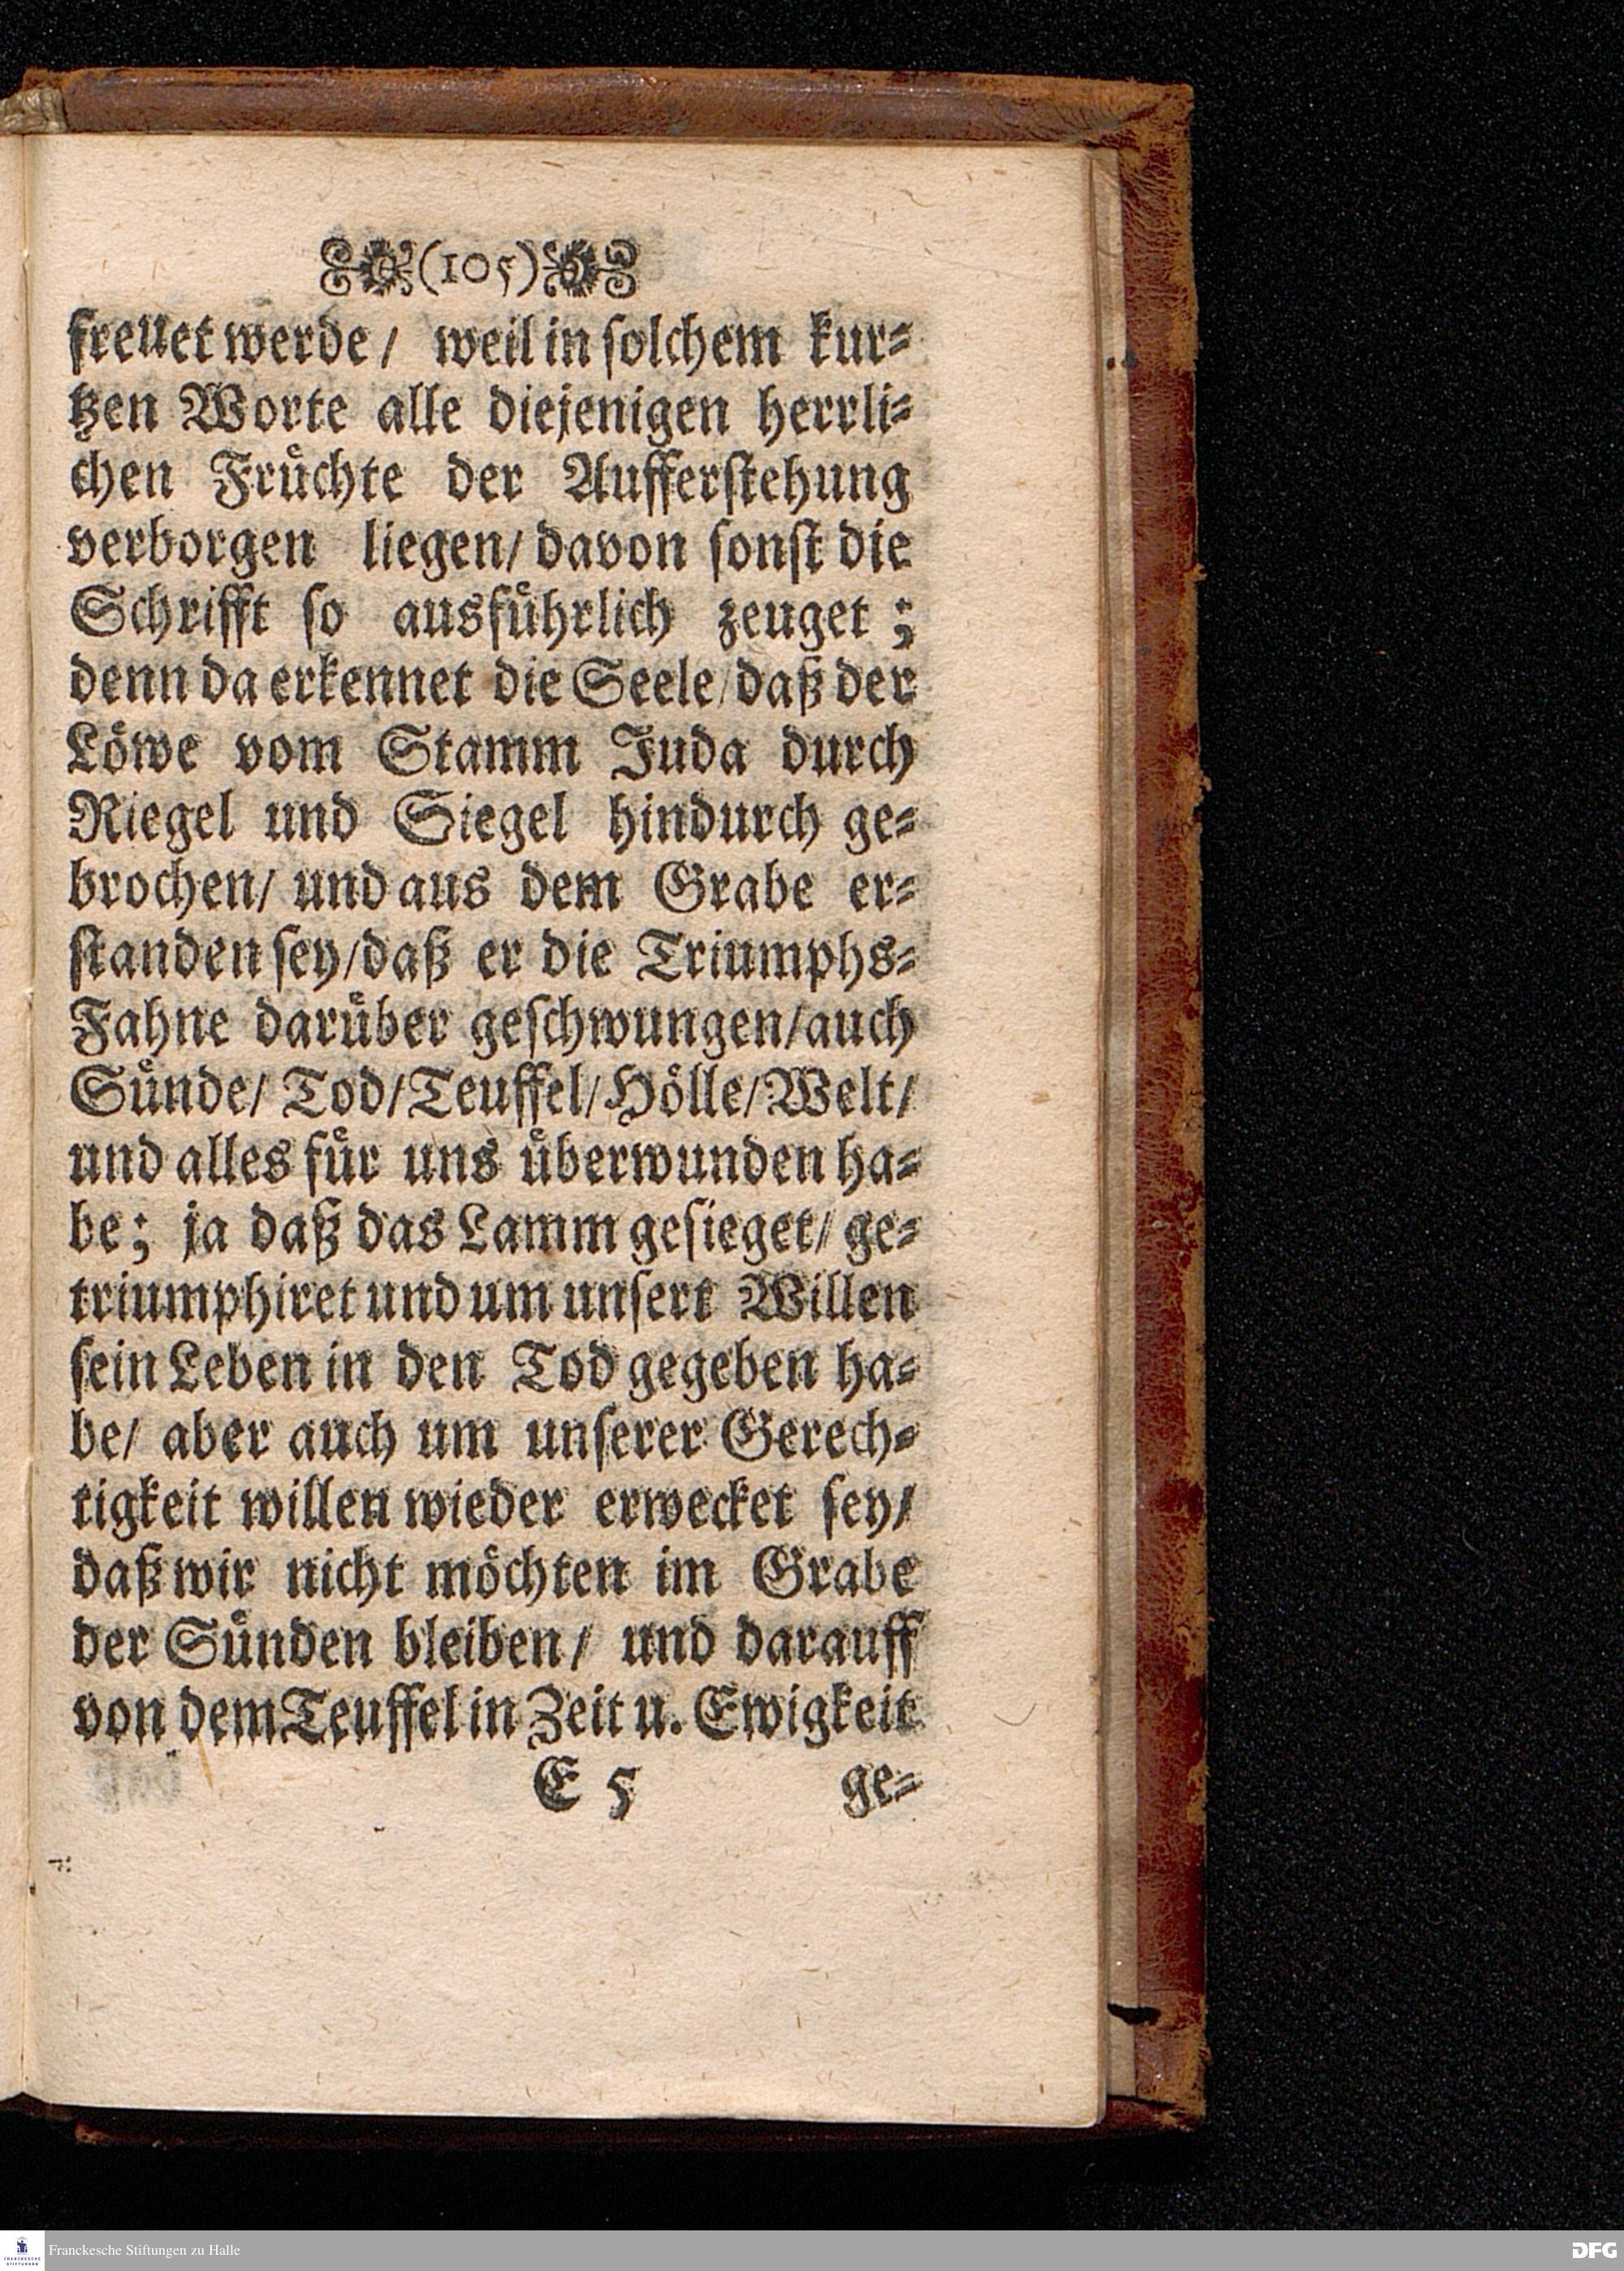 (105)
freuet werde/ weil in ſolchem kur⸗
tzen Worte alle diejenigen herrli⸗
chen Fruͤchte der Aufferſtehung
verborgen liegen/ davon ſonſt die
Schrifft ſo ausfuͤhrlich zeuget ;
denn da erkennet die Seele/ daß der
Loͤwe vom Stamm Juda durch
Riegel und Siegel hindurch ge⸗
brochen/ und aus dem Grabe er⸗
ſtanden ſey/ daß er die Triumphs⸗
Fahne daruͤber geſchwungen/ auch
Suͤnde/ Tod/ Teuffel/ Hoͤlle/ Welt/
und alles fuͤr uns uͤberwunden ha⸗
be; ja daß das Lamm geſieget/ ge⸗
triumphiret und um unſert Willen
ſein Leben in den Tod gegeben ha⸗
be/ aber auch um unſerer Gerech⸗
tigkeit willen wieder erwecket ſey/
daß wir nicht moͤchten im Grabe
der Suͤnden bleiben/ und darauff
von dem Teuffel in Zeit u. Ewigkeit
E 5 ge⸗
FRANCKESCHE STIFTUNGEN
Franckesche Stiftungen zu Halle
DFG